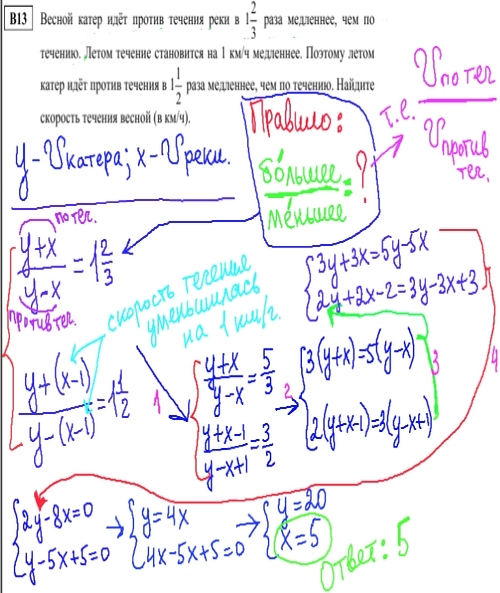 B13 Весной катер идёт против течения реки в 1 2/3 раза медленнее, чем по
течению. Летом течение становится на 1 км/ч медленнее. Поэтому летом
катер идёт против течения в 1 1/2 раза медленнее, чем по течению. Найдите
скорость течения весной (в км/ч).
Правило:
бо́льшее/ме́ньшее = ?
т.е. Vпо теч/Vпротив теч.
y - Vкатера; x - Vреки.
по теч.
y+x/y-x = 1 2/3
против теч.
скорость течения
уменьшилась
на 1 км/г.
y+(x-1)/y-(x-1) = 1 1/2
1
{ y+x/y-x = 5/3
y+x-1/y-x+1 = 3/2
2
{ 3(y+x)=5(y-x)
2(y+x-1)=3(y-x+1)
3
{ 3y+3x=5y-5x
2y+2x-2=3y-3x+3
4
{ 2y-8x=0
y-5x+5=0
{ y=4x
4x-5x+5=0
{ y=20
x=5
Ответ: 5